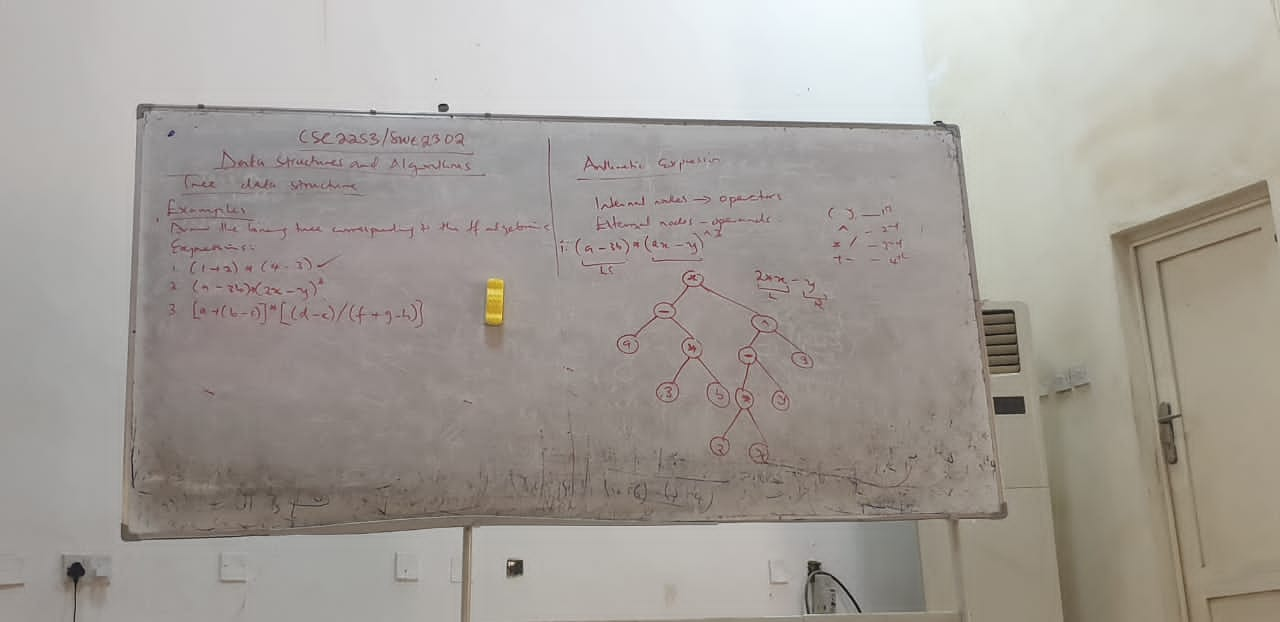 CSC2253/SWE2302
Data Structures and Algorithms
Tree data structure
Examples
Draw the binary tree corresponding to the ff algebraic
Expressions:
1. (1+2) * (4-3) ✓
2. (a-3b)*(2x-y)³
3. [a+(b-c)]*[(d-e)/(f+g-h)]
Arithmetic Expression
Internal nodes → operators
External nodes - operands
(a-3b)*(2x-y)^3
LS
( ) - 1st
^ - 2nd
* / - 3rd
+ - - 4th
2*x - y
L R
*
-
^
a
*
-
3
3
b
*
y
2
x